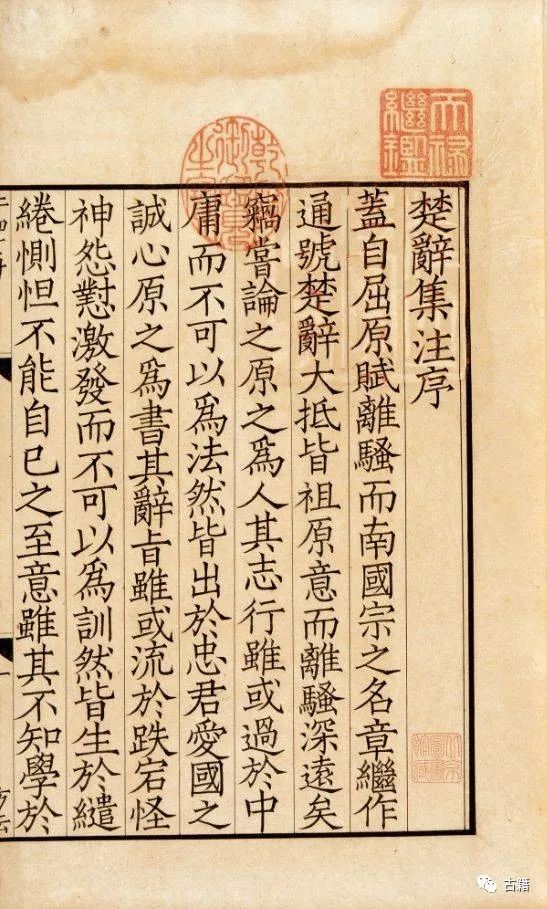 楚辭集注序
蓋自屈原賦離騷而南國宗之名章繼作
通號楚辭大抵皆祖原意而離騷深遠矣
竊嘗論之原之為人其志行雖或過於中
庸而不可以為法然皆出於忠君愛國之
誠心原之為書其辭旨雖或流於跌宕怪
神怨懟激發而不可以為訓然皆生於繾
綣惻怛不能自已之至意雖其不知學於
天祿繼鑑
乾隆御覽之寶
北京圖書館藏
古籍